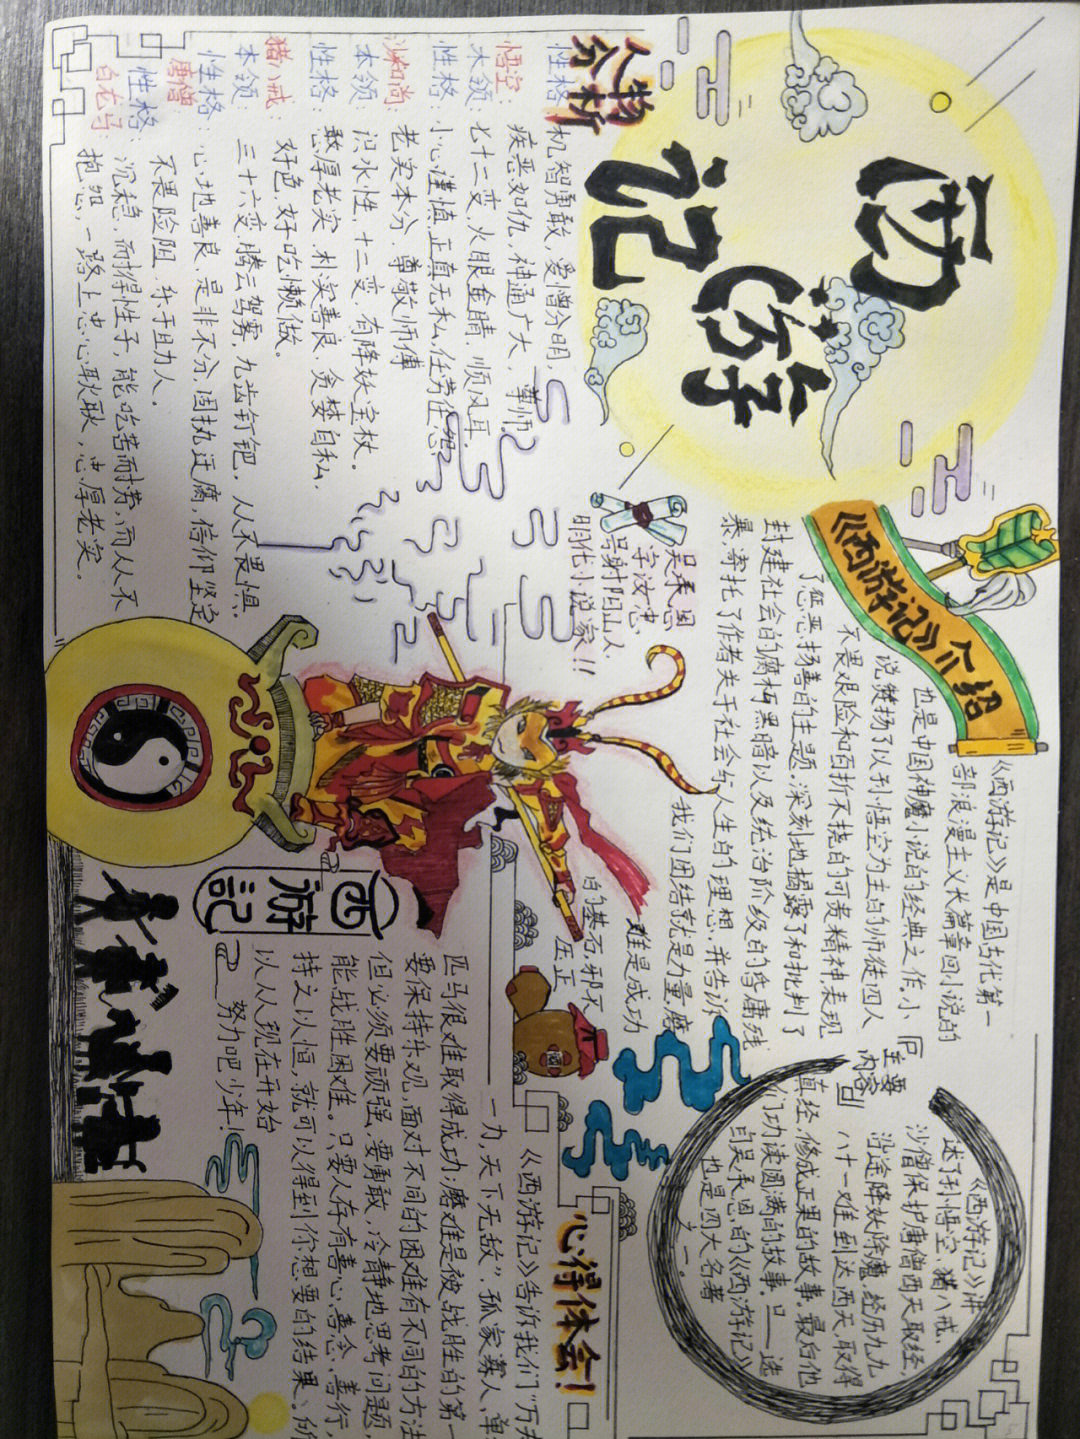 西游记
人物分析
性格:机智勇敢,爱憎分明,
悟空:疾恶如仇,神通广大,尊师。
本领:七十二变,火眼金睛,顺风耳
性格:小心谨慎,正直无私,任劳任怨
沙和尚:老实本分.尊敬师傅
本领 识水性,十二变.有降妖宝杖。
性格:憨厚老实.朴实善良.贪婪自私.
猪八戒:好色,好吃懒做。
本领:三十六变,腾云驾雾,九齿钉钯。从不畏惧.
性格:心地善良,是非不分,固执迂腐,信仰坚定
唐僧 不畏险阻.乐于助人。
性格:沉稳,而 性子,能吃苦耐劳,而从不
白龙马:抱怨,一路上忠心耿耿,忠厚老实。
吴承恩
字汝忠,
号射阳山人.
明代小说家!!
《西游记》介绍
《西游记》是中国古代第一
部浪漫主义长篇章回小说的
也是中国神魔小说的经典之作.小
说赞扬了以孙悟空为主的师徒四人
不畏艰险和百折不挠的可贵精神,表现
了惩恶扬善的主题.深刻地揭露了和批判了
封建社会的腐朽黑暗以及统治阶级的昏庸残
暴,寄托了作者关于社会与人生的理想,并告诉
我们团结就是力量,磨
难是成功
的基石,邪不
压正
主要
内容
《西游记》讲
述了孙悟空.猪八戒,
沙僧保护唐僧西天取经,
沿途降妖除魔,经历九九
八十一难,到达西天,取得
真经,修成正果的故事.最后他
们功读圆满的故事.且——选
自吴承恩的《西游记》
也是四大名著
之一。
心得体会!
《西游记》告诉我们"万夫
一力,天下无敌",孤家寡人,单
匹马很难取得成功;磨难是被战胜自的第一
要保持乐观,面对不同的困难有不同的方法
但必须要顽强,要勇敢,冷静地思考问题,
能战胜困难。只要人存有善心.善念.善行,
持之以恒,就可以得到你想要的结果.所
以从从现在开始
努力吧少年!
西游記